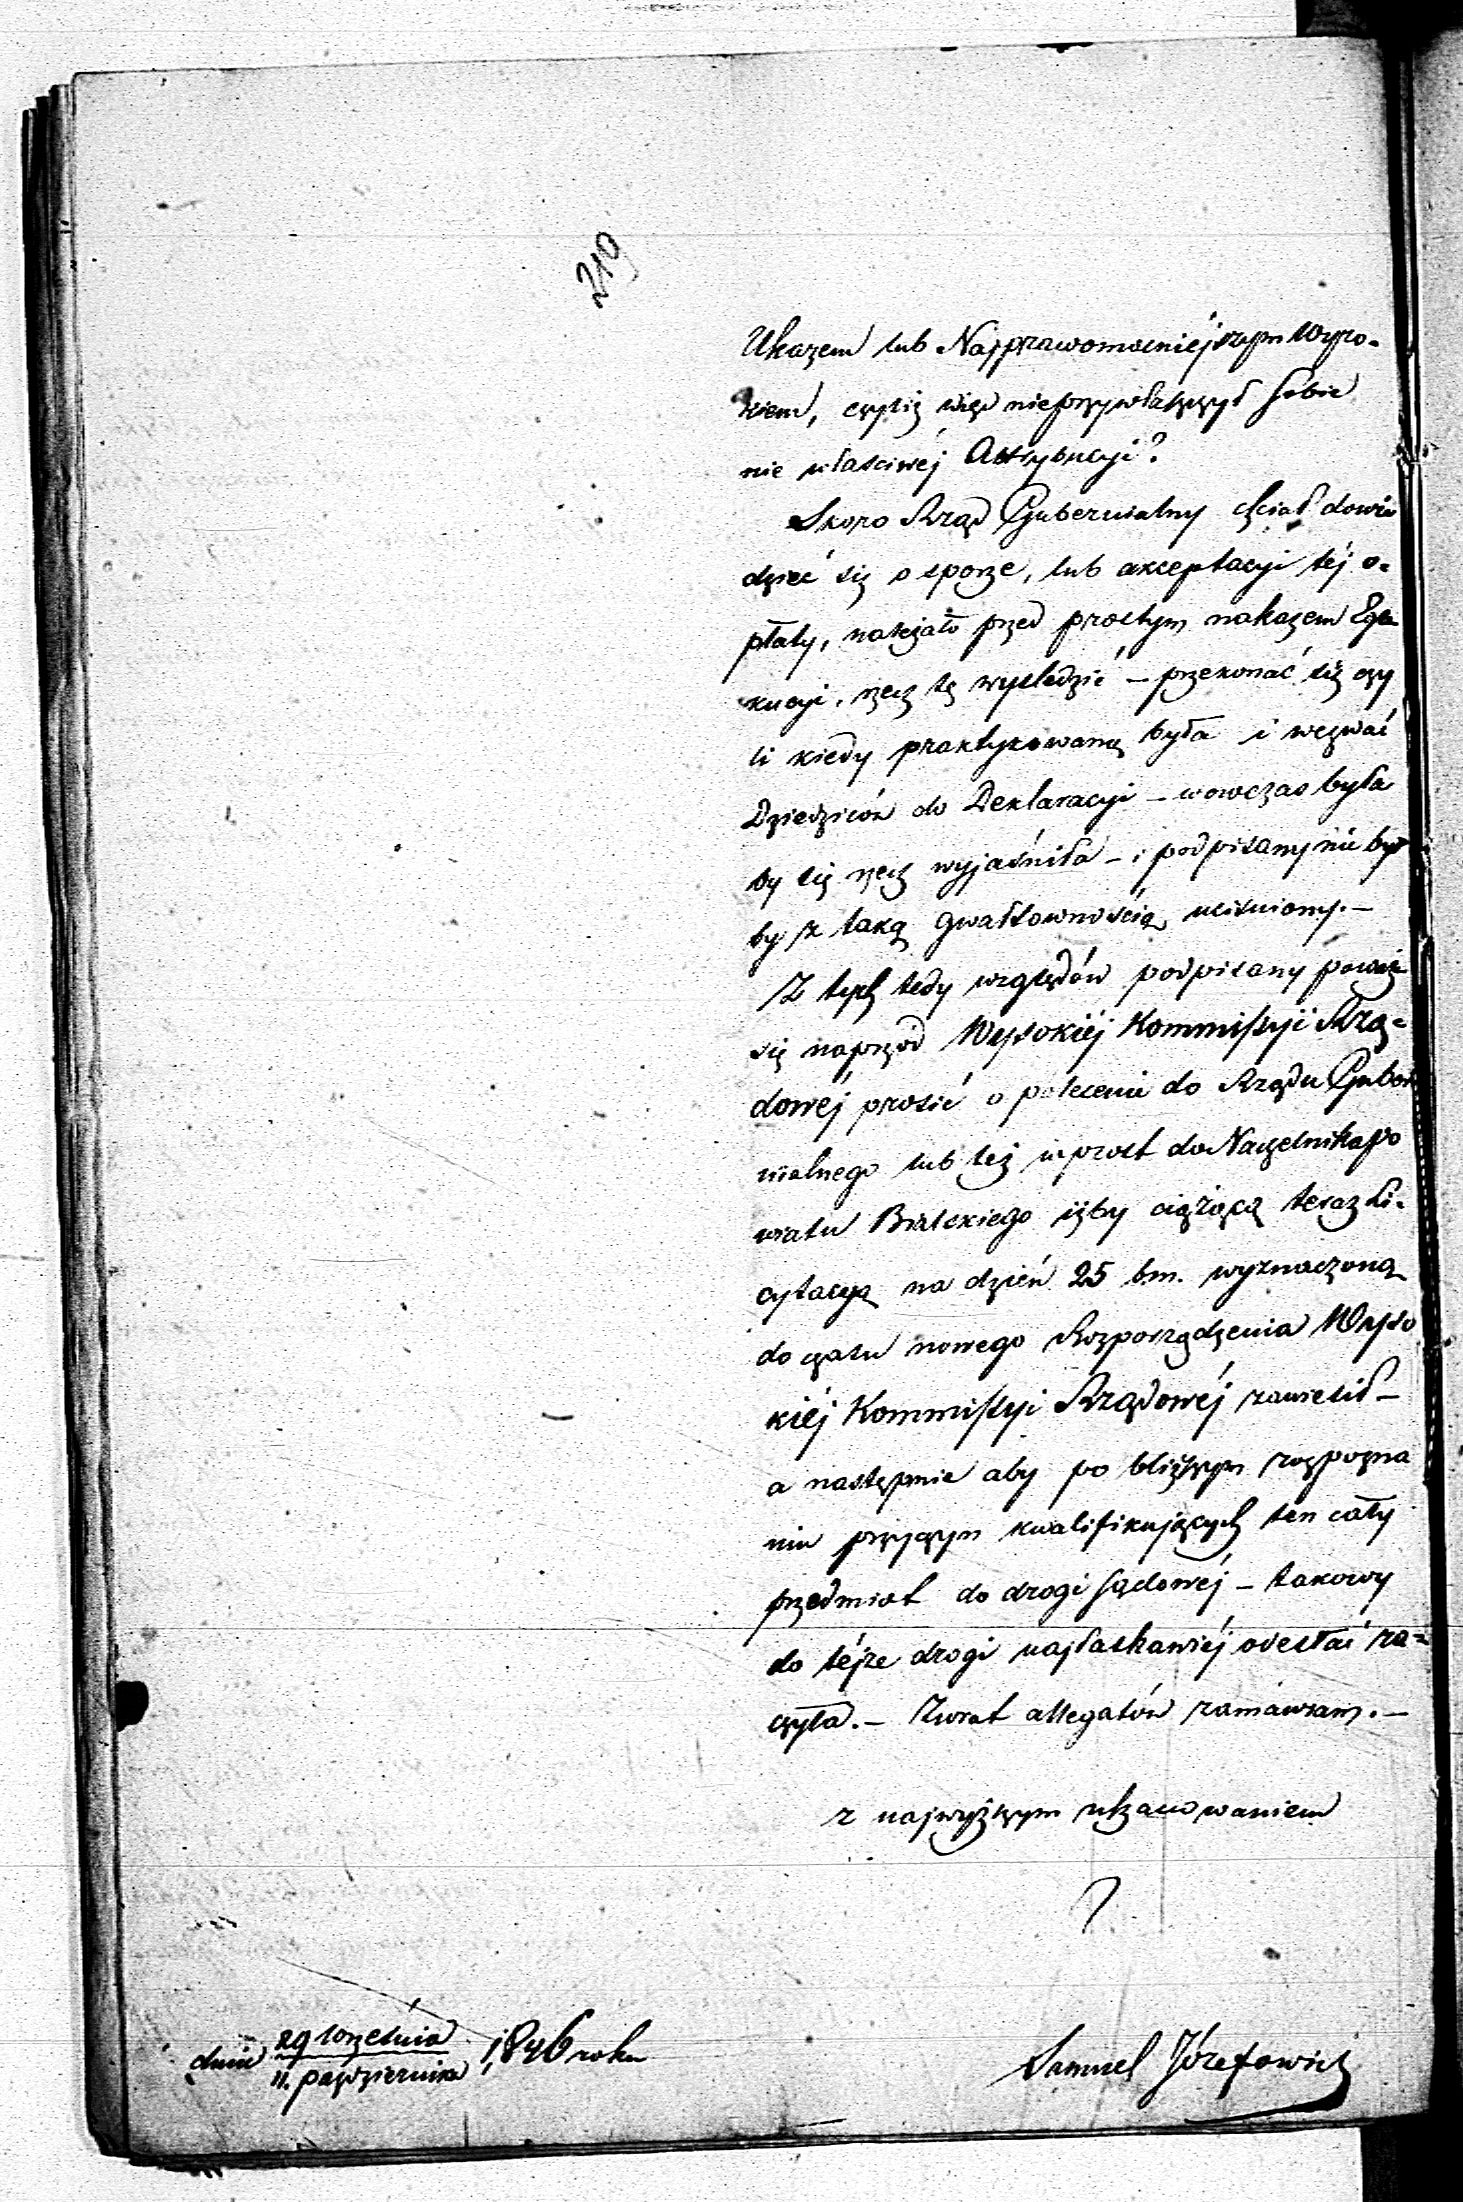 210
Ukazem lub Najprawomocniéjszym Wyro-
kiem, czyliż więc nieprzywłaszczył sobie
nie właściwéj Attrybucyi?
Skoro Rząd Gubernialny chciał dowie
dzieć się o sporze, lub akceptacyi téj o-
płaty, należało przed prostym nakazem Exe
kucyi, rzecz tę wyśledzić – przekonać się czy
li kiedy praktykowaną była i wezwać
Dziedziców do Deklaracyi – wowczas była
by się rzecz wyjaśniła – i podpisany nie był
by z taką gwałtownością uciśniony. –
Z tych tedy względów podpisany poważa
się naprzód Wysokiéj Kommissyi Rzą-
dowéj prosić o polecenie do Rządu Guber
nialnego lub też wprost do Naczelnika po
wiatu Bialskiego iżby ciążącą teraz li-
cytacyą na dzień 25 bm. wyznaczoną
do czasu nowego Rozporządzenia Wyso
kiéj Kommissyi Rządowéj zawiesił –
a następnie aby po bliższym rozpozna
niu przyczyn kwalifikujących ten cały
przedmiot do drogi sądowéj – takowy
do téjże drogi najłaskawiéj odesłać ra-
czyła. – Zwrot allegatów zamawiam. –
z najwyższym uszanowaniem
dnia 29 Września
11. października 1846 roku
Samuel Józefowicz